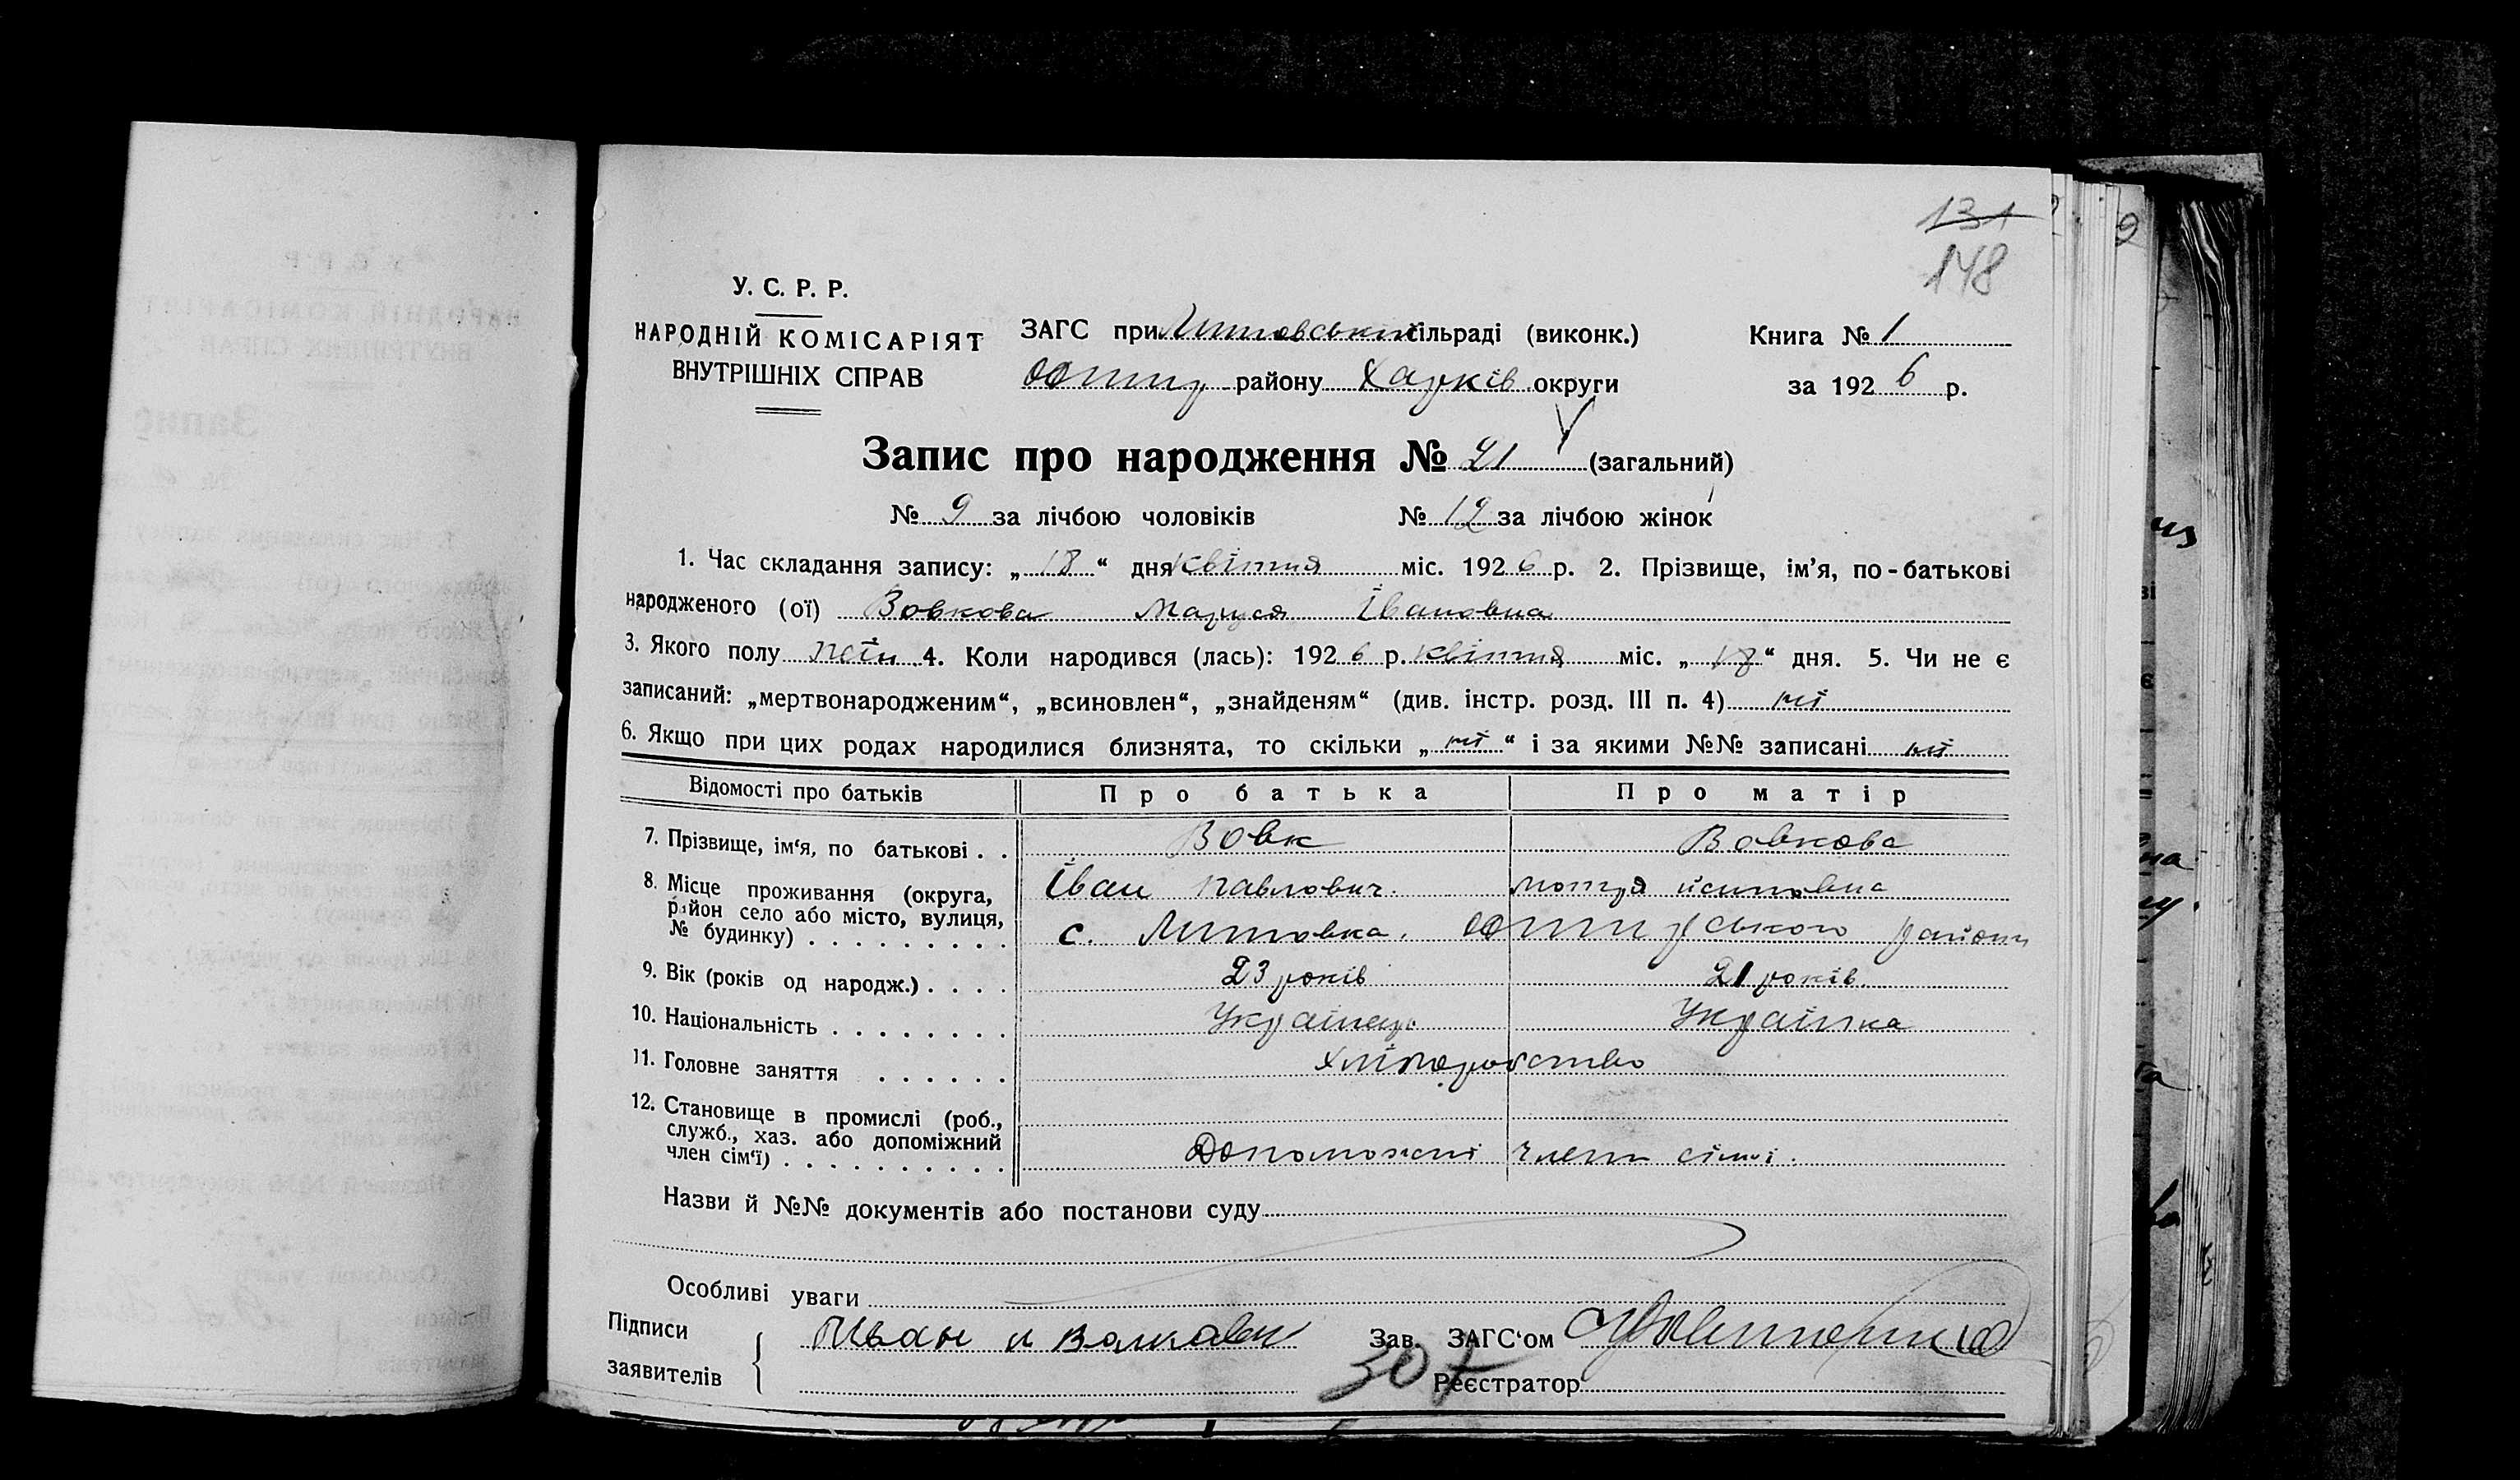 131
148
У. С. Р. Р.
НАРОДНІЙ КОМІСАРІЯТ
ВНУТРІШНІХ СПРАВ
ЗАГС при Литовській сільраді (виконк.)
районy Харків округи
Книга № 1
за 1926 р.
Запис про народження № 21 (загальний)
№ 9 за лічбою чоловіків № 12 за лічбою жінок
1. Час складання запису: „18“ дня квітня міс. 1926 р. 2. Прізвище, ім’я, по-батькові
народженого (ої) Вовкова Маруся Івановна
3. Якого полу жін 4. Коли народився (лась): 1926 р. квітня міс. „18“ дня. 5. Чи не є
записаний: „мертвонародженим“, „всиновлен“, „знайденям“ (див. інстр. розд. III п. 4) ні
6. Якщо при цих родах народилися близнята, то скільки „ні“ і за якими №№ записані ні
Відомості про батьків Про батька Про матір
7. Прізвище, ім‘я, по батькові . . Вовк Вовкова
Іван Павлович. Мотря
8. Місце проживання (округа,
район село або місто, вулиця,
№ будинку) . . . . . . . . . с. Литовка. району
9. Вік (років од народж.) . . . . 23 років 21 років.
10. Національність . . . . . . . . Українець Українка
11. Головне заняття . . . . . . Хліборобство
12. Становище в промислі (роб.,
служб., хаз. або допоміжний
член сім‘ї) . . . . . . . . . . Допоможні члени сімї.
Назви й №№ документів або постанови суду
Особливі уваги
Підписи
заявителів
Иван
Зав. ЗАГС‘ом
307
Реєстратор